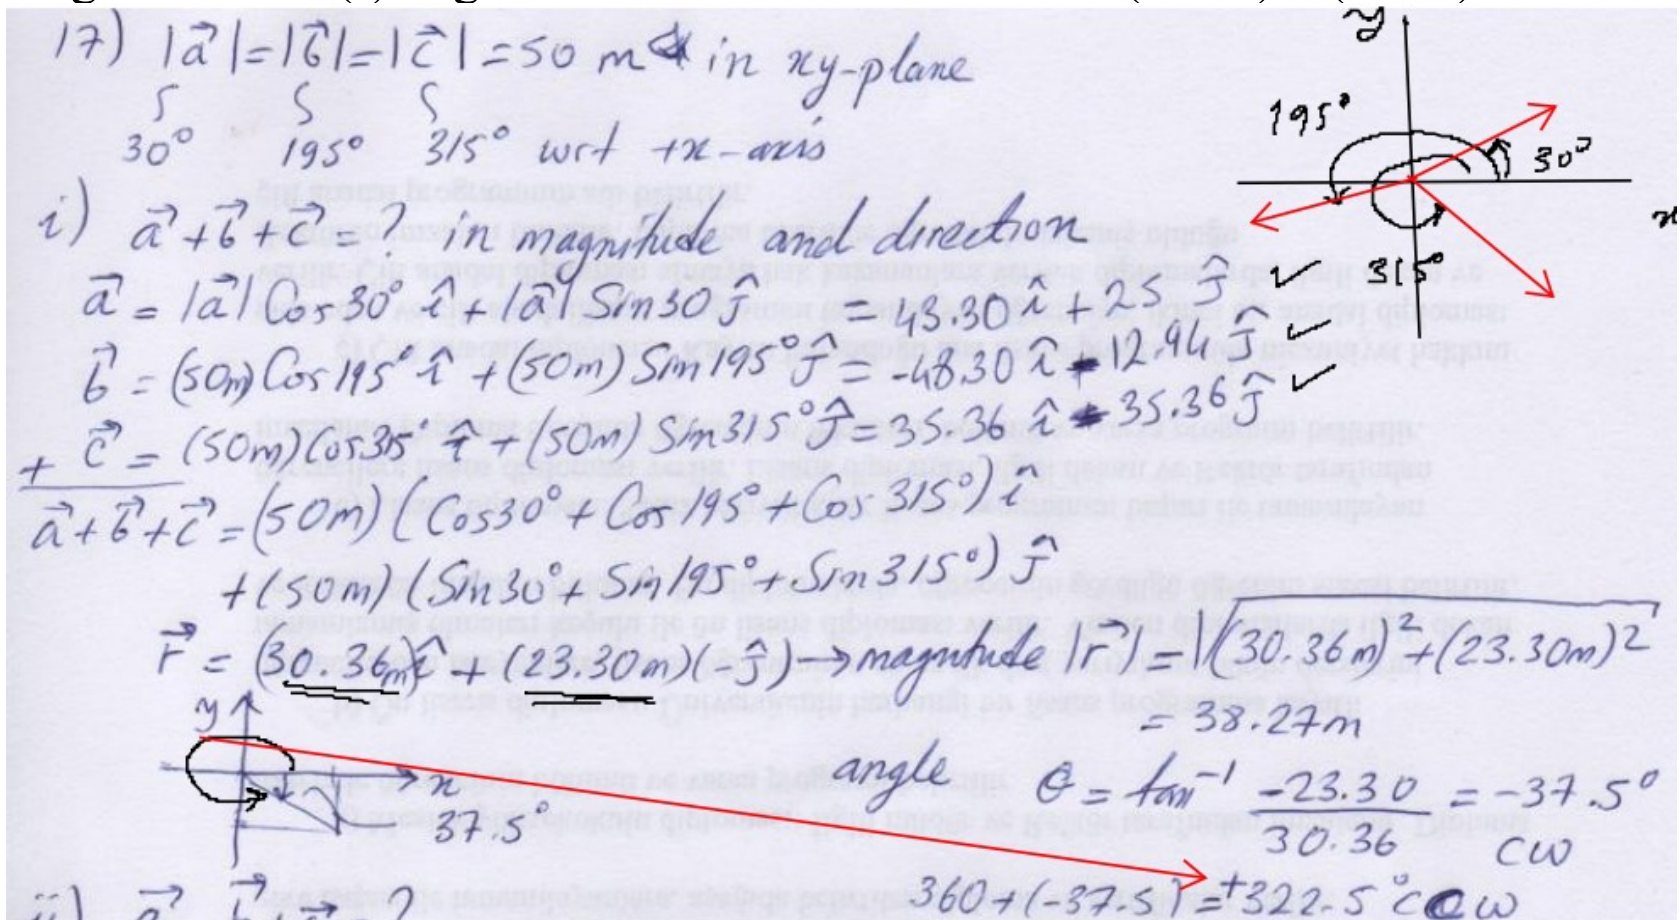 17) |a⃗| = |b⃗| = |c⃗| = 50 m in xy-plane
30° 195° 315° wrt +x-axis
i) a⃗ + b⃗ + c⃗ = ? in magnitude and direction
a⃗ = |a⃗| Cos 30° î + |a⃗| Sin 30 ĵ = 43.30 î + 25 ĵ ✓✓
b⃗ = (50m) Cos 195° î + (50m) Sin 195° ĵ = -48.30 î - 12.94 ĵ ✓
+ c⃗ = (50m) Cos 315° î + (50m) Sin 315° ĵ = 35.36 î - 35.36 ĵ ✓
a⃗ + b⃗ + c⃗ = (50m) (Cos 30° + Cos 195° + Cos 315°) î
+ (50m) (Sin 30° + Sin 195° + Sin 315°) ĵ
r⃗ = (30.36m) î + (23.30m)(-ĵ) → magnitude |r⃗| = √(30.36m)² + (23.30m)²
= 38.27m
angle θ = tan⁻¹ -23.30 / 30.36 = -37.5° CW
360 + (-37.5) = +322.5° CCW
y
x
37.5°
y
195°
30°
x
315°